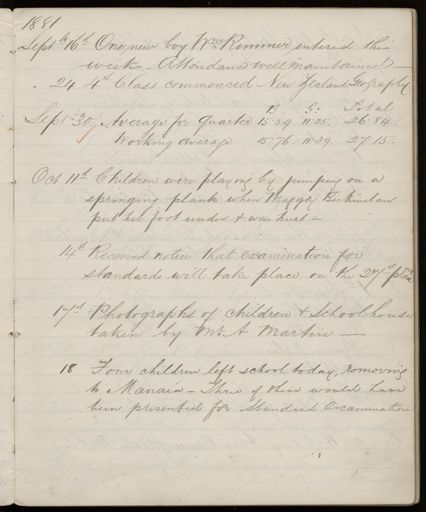 1881
Septr 16th One new boy Wm Rimmer entered this
week - Attendance well maintained -
" 24 4th Class commenced New Zealand Geography.
B G: Total
Septr 30, Average for Quarter 15.59 11.25. 26.84
Working average 15.76. 11.39. 27.15.
Oct 11th Children were playing by jumping on a
springing plank when Maggy
put her foot under & was hurt -
14th Received notice that examination for
standards will take place on the 27th
17th Photographs of children & Schoolhouse
taken by Mr A Martin -
18 Four children left school today, removing
to Manaia - Three of these would have
been presented for Standard Examination